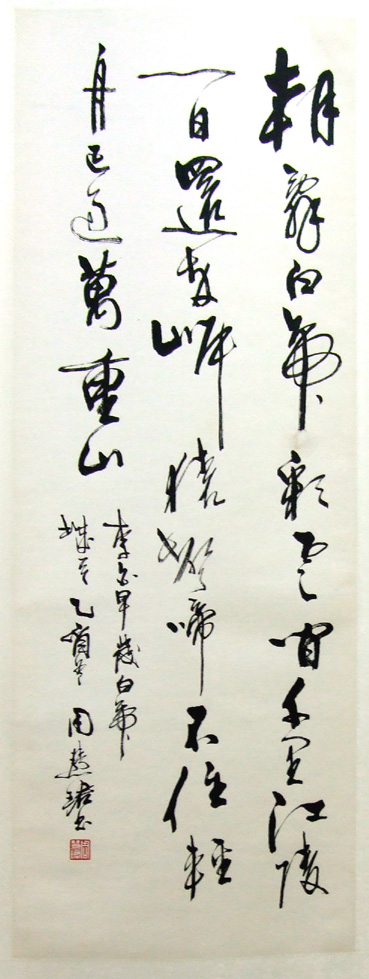 朝辭白帝彩雲間千里江陵
一日還兩岸猿聲啼不住輕
舟已過萬重山
李白早發白帝
城 乙 周慧珺書